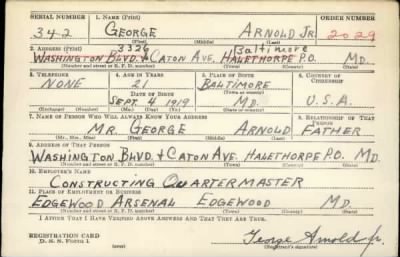 SERIAL NUMBER 1. NAME (Print) ORDER NUMBER
342 GEORGE ARNOLD JR. 2029
(First) (Middle) (Last)
2. ADDRESS (Print) 3326 Baltimore
WASHINGTON BLVD. & CATON AVE. HALETHORPE P.O. MD.
(Number and street or R. F. D. number) (Town) (County) (State)
3. TELEPHONE 4. AGE IN YEARS 5. PLACE OF BIRTH 6. COUNTRY OF CITIZENSHIP
NONE 21 BALTIMORE
DATE OF BIRTH (Town or county)
SEPT. 4 1919 MD. U.S.A.
(Exchange) (Number) (Mo.) (Day) (Yr.) (State or country)
7. NAME OF PERSON WHO WILL ALWAYS KNOW YOUR ADDRESS 8. RELATIONSHIP OF THAT PERSON
MR. GEORGE ARNOLD FATHER
(Mr., Mrs., Miss) (First) (Middle) (Last)
9. ADDRESS OF THAT PERSON
WASHINGTON BLVD. & CATON AVE. HALETHORPE P.O. MD.
(Number and street or R. F. D. number) (Town) (County) (State)
10. EMPLOYER'S NAME
CONSTRUCTING QUARTERMASTER
11. PLACE OF EMPLOYMENT OR BUSINESS
EDGEWOOD ARSENAL EDGEWOOD MD.
(Number and street or R. F. D. number) (Town) (County) (State)
I AFFIRM THAT I HAVE VERIFIED ABOVE ANSWERS AND THAT THEY ARE TRUE.
REGISTRATION CARD
D. S. S. FORM 1 (over) George Arnold Jr.
(Registrant's signature)